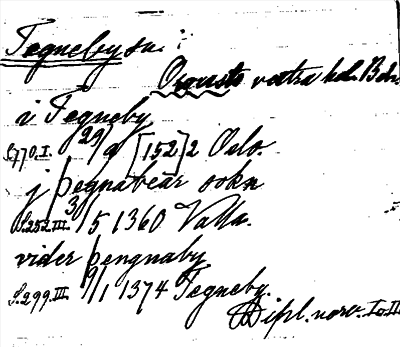 Tegneby sn.
Orousts vestra hd. Boh.
i Tegneby
S.770.I. 29/9 [152]2 Oslo.
j þegnabœar sokn
S.252.III. 3/5 1360 Valla.
vider þengnaby
S.299.III. 9/1 1374 Tegneby.
Dipl. norv. I o II